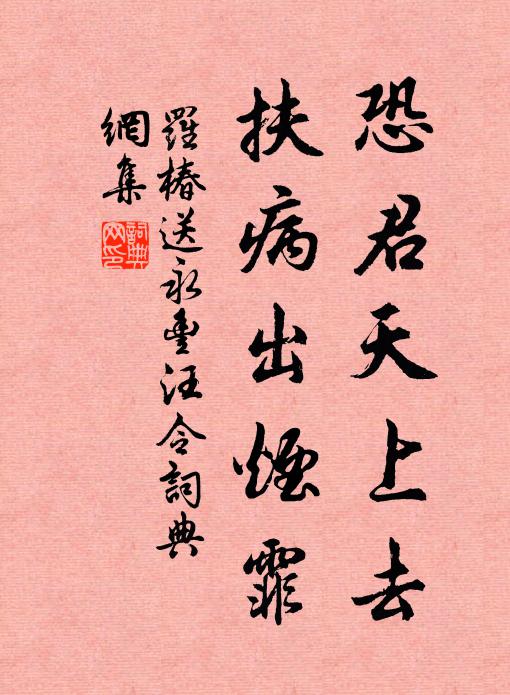 恐君天上去
扶病出煙霏
羅椿送永豐汪令詞典
網集
詞典網印